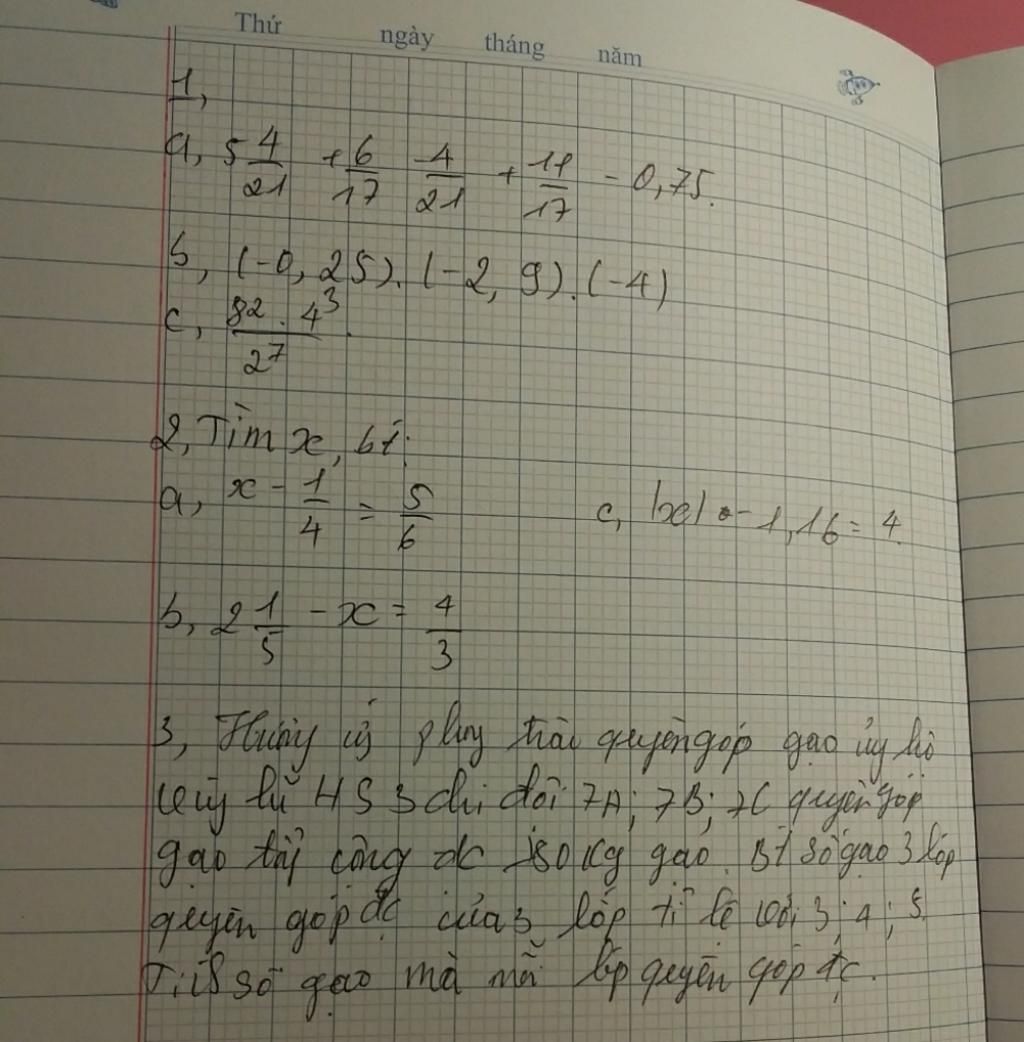 Thứ ngày tháng năm
1,
a, 5 4/21 + 6/17 - 4/21 + 11/17 - 0,75.
b, (-0,25).(-2,9).(-4)
c, 8². 4³/2⁷.
2, Tìm x, bt:
a, x - 1/4 = 5/6 c, |x| - 1,16 = 4.
b, 2 1/5 - x = 4/3
3, Hưởng ứ phong trào quyên góp gạo ủy hộ
lũ HS 3 chi đội 7A; 7B; 7C quyên góp
gạo tổng cộng đc 180 Kg gạo. Bt số gạo 3 lớp
quyên góp đc của 3 lớp tỉ lệ với 3; 4; 5.
số gạo mà mỗi lớp quyên góp đc.